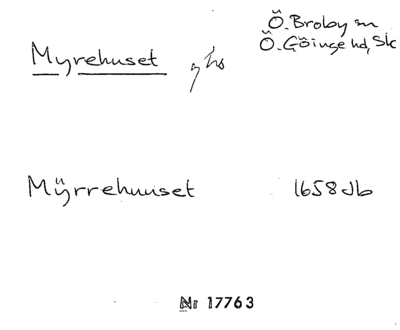 Ö. Broby sn
Myrehuset
Ö. Göinge hd, Sk
Mÿrrehuuset 1658 Jb
Nr 17763